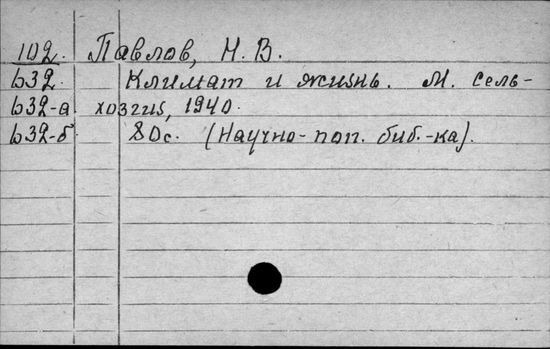 102. Павлов, Н. В.
632. Климат и жизнь. М. сель-
632-а хозгиз, 1940.
632-б 80с. (Научно-поп. биб.-ка).